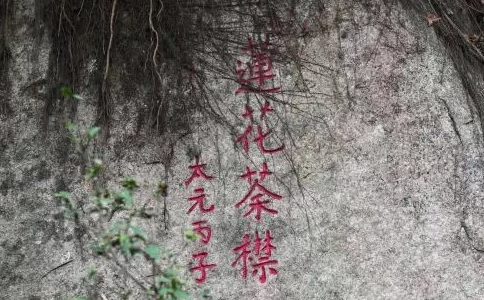 蓮花荼襟
太元丙子